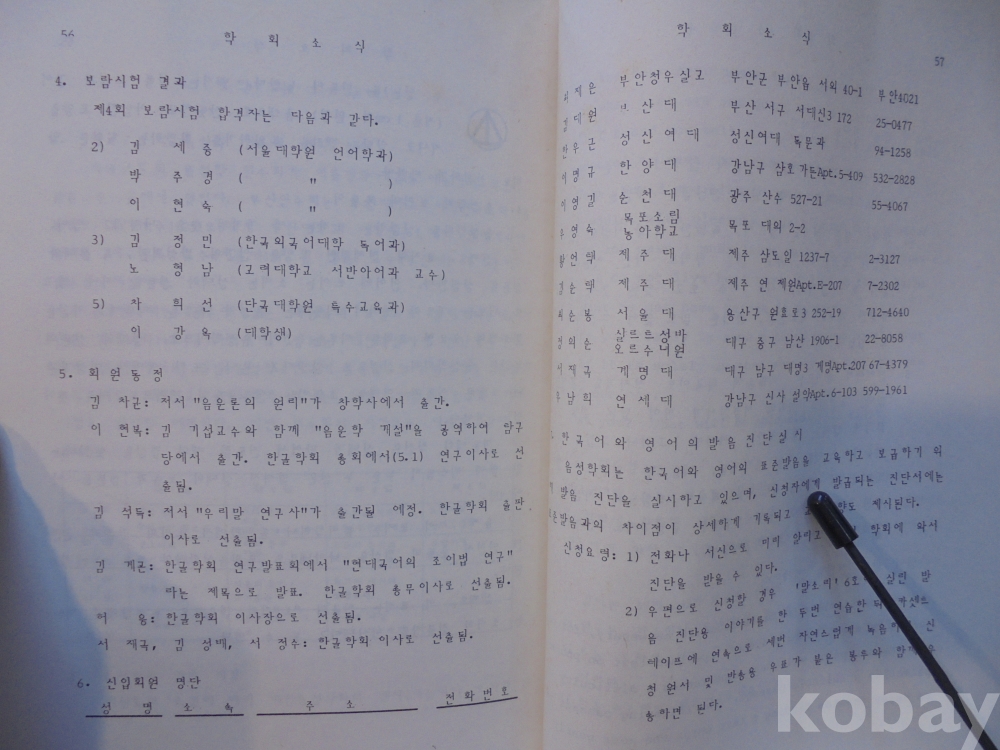 56
학 회 소 식
4. 보람시험 결과
제4회 보람시험 합격자는 다음과 같다.
2) 김 세 중 (서울대학원 언어학과)
박 주 경 ( " )
이 현 숙 ( " )
3) 김 정 민 (한국외국어대학 독어과)
노 형 남 (고려대학교 서반아어과 교수)
5) 차 희 선 (단국대학원 특수교육과)
이 강 욱 (대학생)
5. 회 원 동 정
김 차균: 저서 "음운론의 원리"가 창학사에서 출간.
이 현복: 김 기섭교수와 함께 "음운학 개설"을 공역하여 탐구
당에서 출간. 한글학회 총회에서(5.1) 연구이사로 선
출됨.
김 석득: 저서 "우리말 연구사"가 출간될 예정. 한글학회 출판
이사로 선출됨.
김 계곤: 한글학회 연구발표회에서 "현대국어의 조어법 연구"
라는 제목으로 발표. 한글학회 총무이사로 선출됨.
허 웅: 한글학회 이사장으로 선출됨.
서 재극, 김 성배, 서 정수: 한글학회 이사로 선출됨.
6. 신입회원 명단
성 명 소 속 주 소 전화번호
학 회 소 식
57
부안여우실고 부안군 부안읍 서외 40-1 부안4021
대원 부 산 대 부산 서구 서대신3 172 25-0477
안우근 성신여대 성신여대 독문과 94-1258
이명규 한 양 대 강남구 삼호가든Apt.5-409 532-2828
이영길 순 천 대 광주 산수 527-21 55-4067
영숙 목포소림 농아학교 목포 대외 2-2
언택 제 주 대 제주 삼도일 1237-7 2-3127
순택 제 주 대 제주 연 제원Apt.E-207 7-2302
순봉 서 울 대 용산구 원효로3 252-19 712-4640
의순 살르르성바오르수녀원 대구 중구 남산 1906-1 22-8058
서재극 계 명 대 대구 남구 대명3 계명Apt.207 67-4379
남희 연 세 대 강남구 신사 Apt.6-103 599-1961
한국어와 영어의 발음진단실시
음성학회는 한국어와 영어의 표준발음을 교육하고 보급하기 위
발음 진단을 실시하고 있으며, 신청자에게 발급되는 진단서에는
발음과의 차이점이 상세하게 기록되고 제시된다.
신청요령: 1) 전화나 서신으로 미리 알리고 학회에 와서
진단을 받을 수 있다.
2) 우편으로 신청할 경우 '말소리' 6호 실린 발
음 진단용 이야기를 한 두번 연습한 뒤 카셋트
테이프에 연속으로 세번 자연스럽게 녹음하 신
청원서 및 반송용 우표가 붙은 봉투와 함께
송하면 된다.
kobay